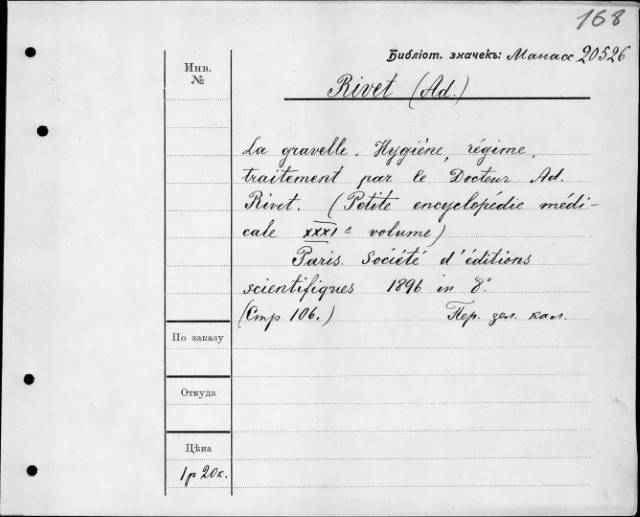 168
Библіот. значекъ: Манасс 20526
Инв.
№
Rivet (Ad.)
La gravelle. Hygiène, régime,
traitement par le Docteur Ad.
Rivet. (Petite encyclopédie médi-
cale XXXI e volume)
Paris. Société d'éditions
scientifiques 1896 in 8°.
(Стр 106.) Пер. зел. кал.
По заказу
Откуда
Цѣна
1 р 20 к.